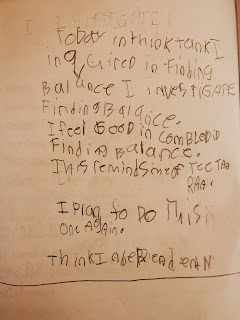 Today in think tank I
inquired in Finding
Balance I INVESTIGATE
Finding Balance.
I feel GOOD in
Finding Balance.
This reminds me of
I plan to DO This
one Again.
Think